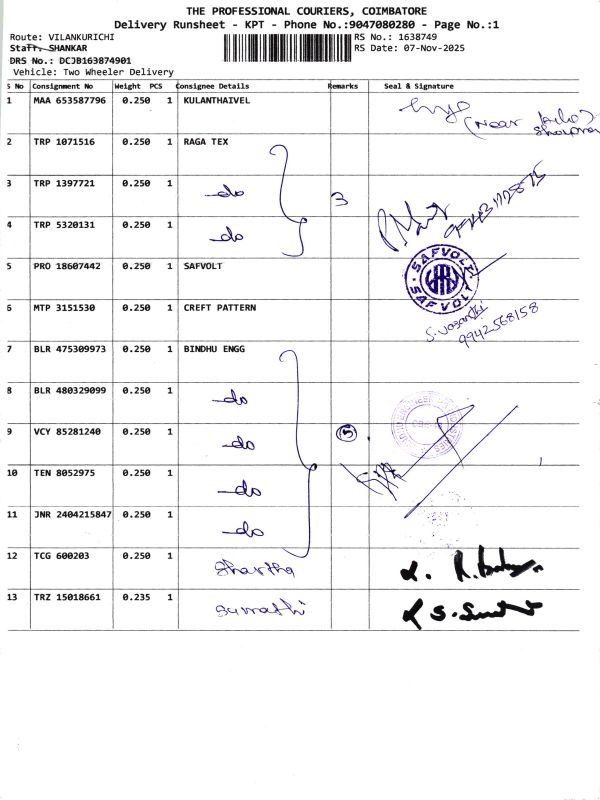 THE PROFESSIONAL COURIERS, COIMBATORE
Delivery Runsheet - KPT - Phone No.:9047080280 - Page No.:1
Route: VILANKURICHI RS No.: 1638749
Staff: SHANKAR RS Date: 07-Nov-2025
DRS No.: DCJB163874901
Vehicle: Two Wheeler Delivery
S No Consignment No Weight PCS Consignee Details Remarks Seal & Signature
1 MAA 653587796 0.250 1 KULANTHAIVEL
(Near
2 TRP 1071516 0.250 1 RAGA TEX
3 TRP 1397721 0.250 1 -do 3
4 TRP 5320131 0.250 1 -do
5 PRO 18607442 0.250 1 SAFVOLT SAFVOLT SAFVOLT
6 MTP 3151530 0.250 1 CREFT PATTERN
S. Vasanthi
9942568158
7 BLR 475309973 0.250 1 BINDHU ENGG
8 BLR 480329099 0.250 1 -do
9 VCY 85281240 0.250 1 -do 5
10 TEN 8052975 0.250 1 -do
11 JNR 2404215847 0.250 1 -do
12 TCG 600203 0.250 1 Shartha
13 TRZ 15018661 0.235 1 Sumathi